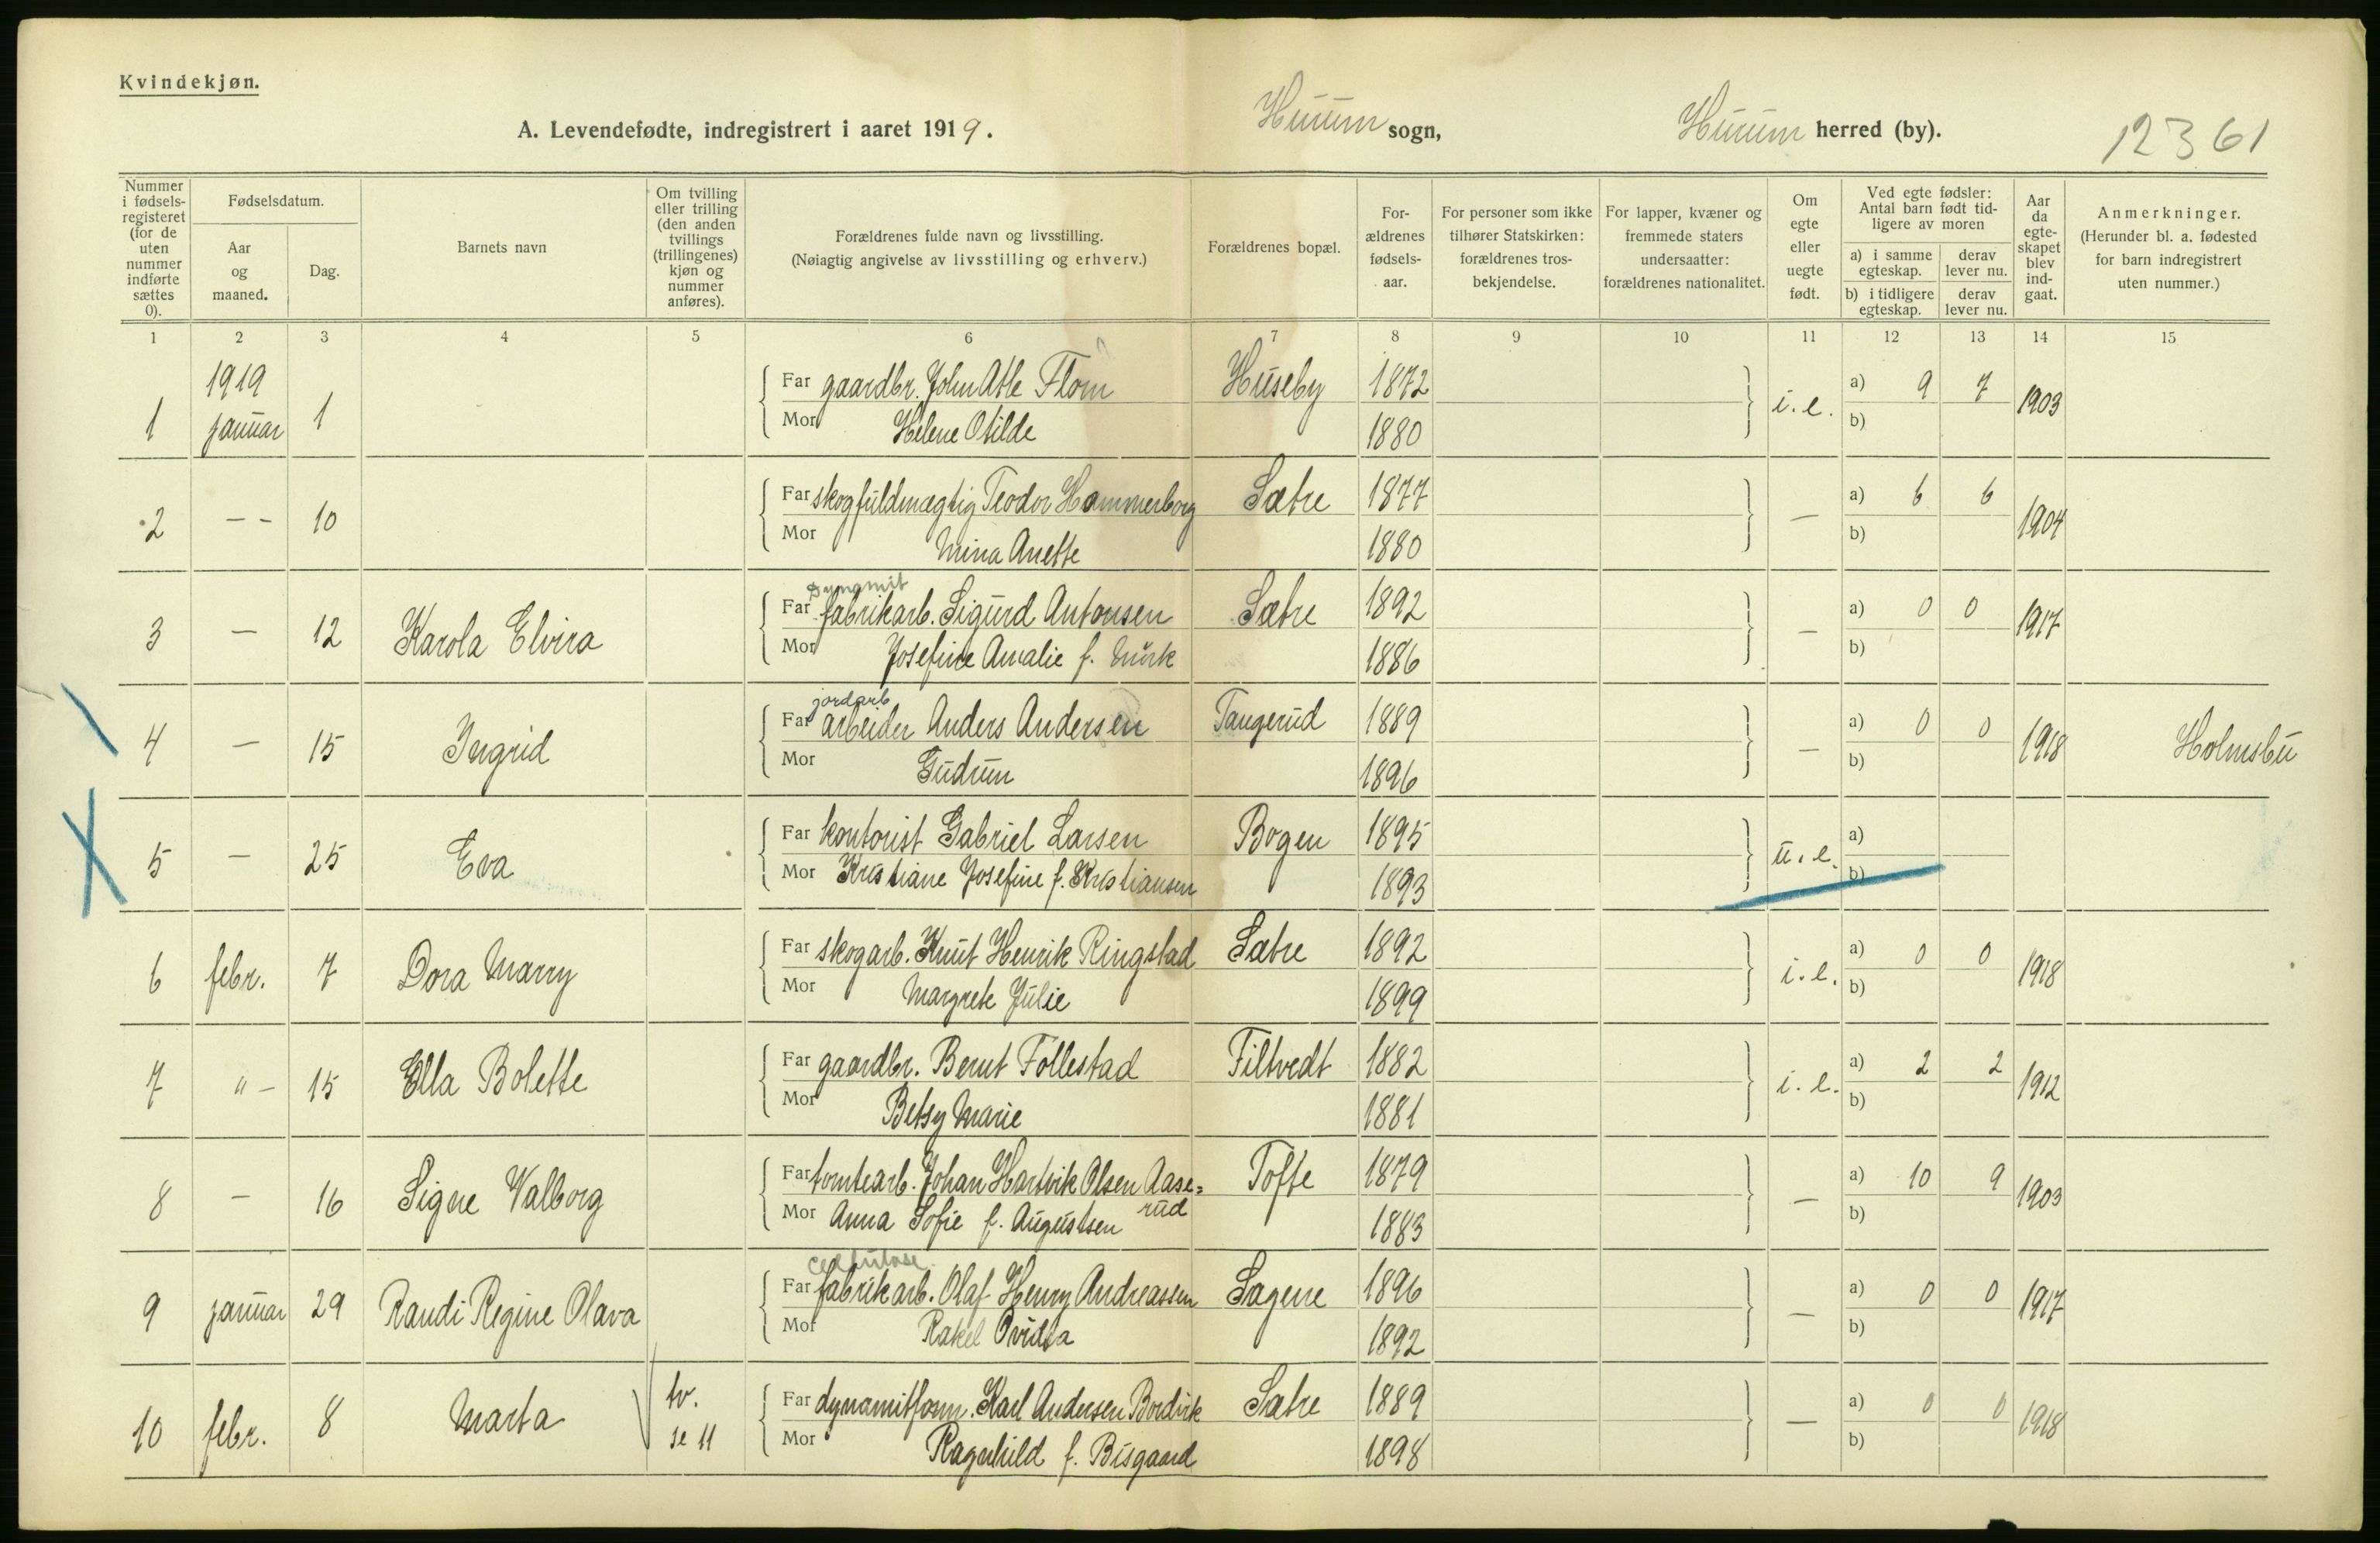 Kvindekjøn.
A. Levendefødte, indregistrert i aaret 1919. Hurum sogn, Hurum herred (by). 12361
Nummer i fødsels-registeret (for de uten nummer indførte sættes 0).
Fødselsdatum.
Aar og maaned.
Dag.
Barnets navn
Om tvilling eller trilling (den anden tvillings (trillingenes) kjøn og nummer anføres).
Forældrenes fulde navn og livsstilling.
(Nøiagtig angivelse av livsstilling og erhverv.)
Forældrenes bopæl.
For-ældrenes fødsels-aar.
For personer som ikke tilhører Statskirken: forældrenes tros-bekjendelse.
For lapper, kvæner og fremmede staters undersaatter: forældrenes nationalitet.
Om egte eller uegte født.
Ved egte fødsler: Antal barn født tid-ligere av moren
a) i samme egteskap.
derav lever nu.
b) i tidligere egteskap.
derav lever nu.
Aar da egte-skapet blev ind-gaat.
Anmerkninger.
(Herunder bl. a. fødested for barn indregistrert uten nummer.)
1 2 3 4 5 6 7 8 9 10 11 12 13 14 15
1 1919 januar 1 Far gaardbr. John Atle Flom Huseby 1872 i. e. a) 9 7 1903
Mor Helene Otilde 1880 b)
2 - - 10 Far skogfuldmægtig Teodor Hammerborg Sætre 1877 — a) 6 6 1904
Mor Mina Anette 1880 b)
dynamit
3 — 12 Karola Elvira Far fabrikarb. Sigurd Antonsen Sætre 1892 — a) 0 0 1917
Mor Josefine Amalie f. Mørk 1886 b)
jordarb
4 — 15 Ingrid Far arbeider Anders Andersen Tangerud 1889 — a) 0 0 1918 Holmsbu
Mor Gudrun 1896 b)
5 — 25 Eva Far kontorist Gabriel Larsen Bogen 1895 u. e. a)
Mor Kristiane Josefine f. Kristiansen 1893 b)
6 febr. 7 Dora Marry Far skogarb. Knut Henrik Ringstad Sætre 1892 i. e. a) 0 0 1918
Mor Margrete Julie 1899 b)
7 " - 15 Ella Bolette Far gaardbr. Bernt Follestad Filtvedt 1882 i. e. a) 2 2 1912
Mor Betsy Marie 1881 b)
8 — 16 Signe Valborg Far tomtearb. Johan Hartvik Olsen Aase= Tofte 1879 — a) 10 9 1903
rud
Mor Anna Sofie f. Augustsen 1883 b)
cellulose
9 januar 29 Randi Regine Olava Far fabrikarb. Olaf Henry Andreassen Sagene 1896 — a) 0 0 1917
Mor Rakel Ovidia 1892 b)
10 febr. 8 Marta tv. se 11 Far dynamitform. Karl Andersen Bordvik Sætre 1889 — a) 0 0 1918
Mor Ragnhild f. Bisgaard 1898 b)